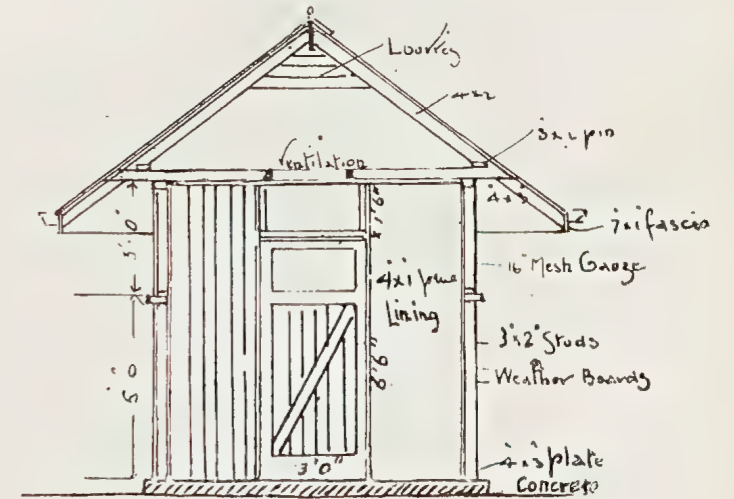 Louvres
4x2
3x2 pin
Ventilation
4x3
7x1 fascia
1'6"
3'0"
16" Mesh Gauze
4x1 pine
Lining
3"x2" Studs
6'6"
5'0"
Weather Boards
3'0"
4x3 plate
Concrete